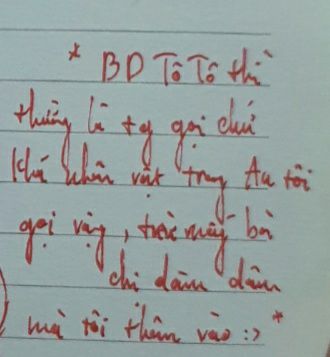 * BD Tô Tô thì
thường là tg gọi chứ
khá nhân vật trong Au tôi
gọi vậy, trừ mấy bà
chị dâm dâm
mà tôi thêm vào :> *